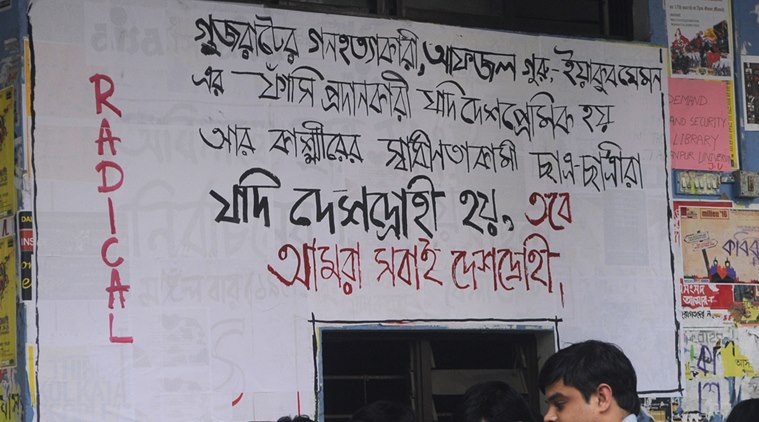 গুজরাটের গনহত্যাকারী, আফজল গুরু - ইয়াকুব মেমন
এর ফাঁসি প্রদানকারী যদি দেশপ্রেমিক হয়
আর কাশ্মীরের স্বাধীনতাকামী ছাত্র-ছাত্রীরা
যদি দেশদ্রোহী হয়, তবে
আমরা সবাই দেশদ্রোহী।
RADICAL
DEMAND
AND SECURITY
LIBRARY
milieu '16